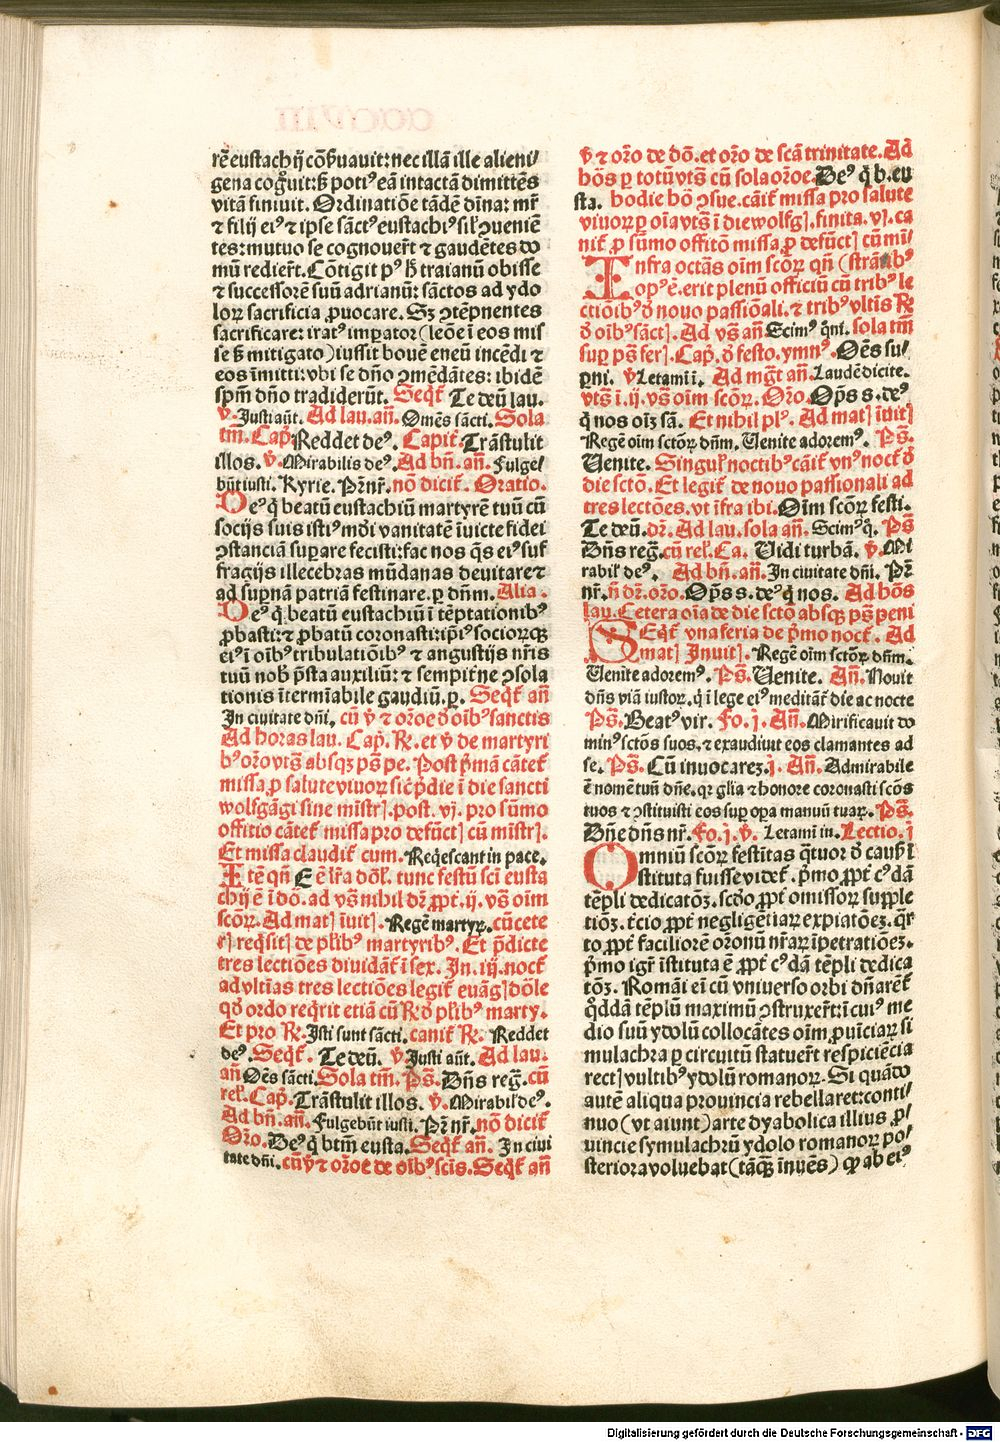 rē eustachij cōẜuauit: nec illā ille alieni⸗
gena cogͫuit: ẜ potiꝰ eā intactā dimittēs
vitā finiuit. Ordinatiōe tādē dīna: mr̄
⁊ filij eiꝰ ⁊ ipse sāctꝰ eustachiꝰ sil̓ ꝯueniē
tes: mutuo se cognouer̄t ⁊ gaudētes do
mū redier̄t. Cōtigit pꝰ h̄ traianū obisse
⁊ successorē suū adrianū: sāctos ad ydo
loꝝ sacrificia ꝓuocare. Sꝫ ꝯtēpnentes
sacrificare: iratꝰ imꝑator (leōe ī eos mis
se ẜ mitigato) iussit bouē eneū incēdi ⁊
eos īmitti: vbi se dn̄o ꝯmēdātes: ibidē
spm̄ dn̄o tradiderūt. Seqt̄ Te deū lau.
v̄. Justi aūt. Ad lau. an̄. Omēs sācti. Sola
tm̄. Cap̄. Reddet deꝰ. Capit̄. Trāstulit
illos. v̄. Mirabilis deꝰ. Ad bn̄. an̄. Fulge⸗
būt iusti. Kyrie. Pr̄ nr̄. nō dicit̄. Oratio.
Deꝰ q̄ beatū eustachiū martyrē tuū cū
socijs suis isti mōi vanitatē īuicte fidei
ꝯstancia suꝑare fecisti: fac nos q̄s eiꝰ suf
fragijs illecebras mūdanas deuitare ⁊
ad supnā patriā festinare. ꝑ dn̄m. Alia.
Deꝰ q̄ beatū eustachiū ī tēptationibꝰ
ꝓbasti: ⁊ ꝓbatū coronasti: ip̄iꝰ socioꝝqꝫ
eiꝰ ī oībꝰ tribulatiōibꝰ ⁊ angustijs nr̄is
tuū nob̄ p̄sta auxiliū: ⁊ sempit̄ne ꝯsola
tionis īterminabile gaudiū. ꝑ. Seqt̄ an̄
In ciuitate dn̄i, cū v̄ ⁊ orōe d̄ oībꝰ sanctis
Ad horas lau. Cap̄. R̄. et v̄ de martyri
bꝰ orō vts̄ absqꝫ ps̄ pe. Post p̄mā cātet̄
missa ꝓ salute viuoꝝ sic̄ p̄die ī die sancti
wolfgāgi sine mīstrꝭ. post. vj. pro sūmo
offitio cātet̄ missa pro defūctꝭ cū mīstrꝭ.
Et missa claudit̄ cum. Reqͥescant in pace.
Itē qn̄ E ē lr̄a dōl̓. tunc festū sci eusta
chij ē ī dō. ad vs̄ nihil dr̄ ꝓpt̄. ij. vs̄ oīm
scōꝝ. Ad matꝭ īuitꝭ. Regē martyꝝ. cū cete
rꝭ reqͥsitꝭ de pl̓ibꝰ martyribꝰ. Et p̄dicte
tres lectiōes diuidāt̄ ī sex. In. iij. noct̄
ad vltīas tres lectiōes legit̄ euāgꝭ dōle
qd̄ ordo reqͥrit etiā cū R̄ d̄ pl̓ibꝰ marty.
Et pro R̄. Isti sunt sācti. canit̄ R̄. Reddet
deꝰ. Seqt̄. Te deū. v̄ Justi aūt. Ad lau.
an̄ Oēs sācti. Sola tm̄. Ps̄. Dn̄s reḡ. cū
rel̓. Cap̄. Trāstulit illos. v̄. Mirabil̓ deꝰ.
Ad bn̄. an̄. Fulgebūt iusti. Pr̄ nr̄. nō dicit̄
Orō. Deꝰ q̄ btm̄ eusta. Seqt̄ an̄. In ciui
tate dn̄i. cū v̄ ⁊ orōe de oībꝰ scīs. Seqt̄ an̄
v̄ ⁊ orō de dō. et orō de scā trinitate. Ad
hōs ꝑ totū vts̄ cū sola orōe. Deꝰ q̄ b. eu
sta. hodie hō ꝯsue. cāit̄ missa pro salute
viuoꝝ ꝑ oīa vts̄ ī die wolfgꝭ. finita. vj. ca
nit̄ ꝓ sūmo offitō missa ꝓ defūctꝭ cū mī⸗
Infra octās oīm scōꝝ qn̄ (strātibꝰ
opꝰ ē. erit plenū officiū cū tribꝰ le
ctiōibꝰ d̄ nouo passiōali. ⁊ tribꝰ vltīs R̄
d̄ oībꝰ sāctꝭ. Ad vs̄ an̄ Scimꝰ q̄ni. sola tm̄
suꝑ ps̄ ferꝭ. Cap̄. d̄ festo. ymnꝰ. Oēs su⸗
ꝑni. v̄ Letami ī. Ad mḡt an̄. Laudē dicite.
vts̄ ī. ij. vs̄ oīm scōꝝ. Orō. Op̄s s. deꝰ
q̄ nos oīꝫ sā. Et nihil plꝰ. Ad matꝭ īuitꝭ
Regē oīm sctōꝝ dn̄m. Uenite adoremꝰ. Ps̄.
Uenite. Singul̓ noctibꝰ cāit̄ vnꝰ noct̄ d̄
die sctō. Et legit̄ de nouo passionali ad
tres lectiōes. vt īfra ibi. Oīm scōꝝ festi.
Te deū. dr̄. Ad lau. sola an̄. Scimꝰ q̄. Ps̄
Dn̄s reḡ. cū rel̓. Ca. Uidi turbā. v̄. Mi
rabil̓ deꝰ. Ad bn̄. an̄. In ciuitate dn̄i. Pr̄
nr̄. n̄ dr̄. orō. Op̄s s. deꝰ q̄ nos. Ad hōs
lau. Cetera oīa de die sctō absqꝫ ps̄ peni
Seqt̄ vna feria de p̄mo noct̄. Ad
matꝭ Inuitꝭ. Regē oīm sctōꝝ dn̄m.
Uenite adoremꝰ. Ps̄. Uenite. An̄. Nouit
dn̄s viā iustoꝝ. q̄ ī lege eiꝰ meditāt̄ die ac nocte
Ps̄. Beatꝰ vir. Fo. j. An̄. Mirificauit do
minꝰ sctōs suos, ⁊ exaudiuit eos clamantes ad
se. Ps̄. Cū inuocareꝫ. j. An̄. Admirabile
ē nomē tuū dn̄e. qꝛ glīa ⁊ honore coronasti scōs
tuos ⁊ ꝯstituisti eos suꝑ oꝑa manuū tuaꝝ. Ps̄.
Dn̄e dn̄s nr̄. Fo. j. v̄. Letami in. Lectio. j
Omniū scōꝝ festītas q̄tuor d̄ caus̄ ī
stituta fuisse videt̄. p̄mo ꝓpt̄ cꝰdā
tēpli dedicatōꝫ. scdo ꝓpt̄ omissoꝝ supple
tiōꝫ. t̄cio ꝓpt̄ negligētiaꝝ expiatōeꝫ. qͣr
to ꝓpt̄ faciliorē orōnū nr̄aꝝ īpetratiōeꝫ.
p̄mo igr̄ īstituta ē ꝓpt̄ cꝰdā tēpli dedica
tōꝫ. Romāi eī cū vniuerso orbi dn̄aret̄
qͦddā tēplū maximū ꝯstruxer̄t: ī cuiꝰ me
dio suū ydolū collocātes oīm ꝓuīciaꝝ si
mulachra ꝑ circuitū statuer̄t respiciēcia
rectꝭ vultibꝰ ydolū romanoꝝ. Si quādo
autē aliqua prouincia rebellaret: conti⸗
nuo (vt aiunt) arte dyabolica illius ꝓ⸗
uincie symulachrū ydolo romanoꝝ po⸗
steriora voluebat (tāqͣꝫ īnuēs) qꝙ ab eiꝰ
Digitalisierung gefördert durch die Deutsche Forschungsgemeinschaft - DFG